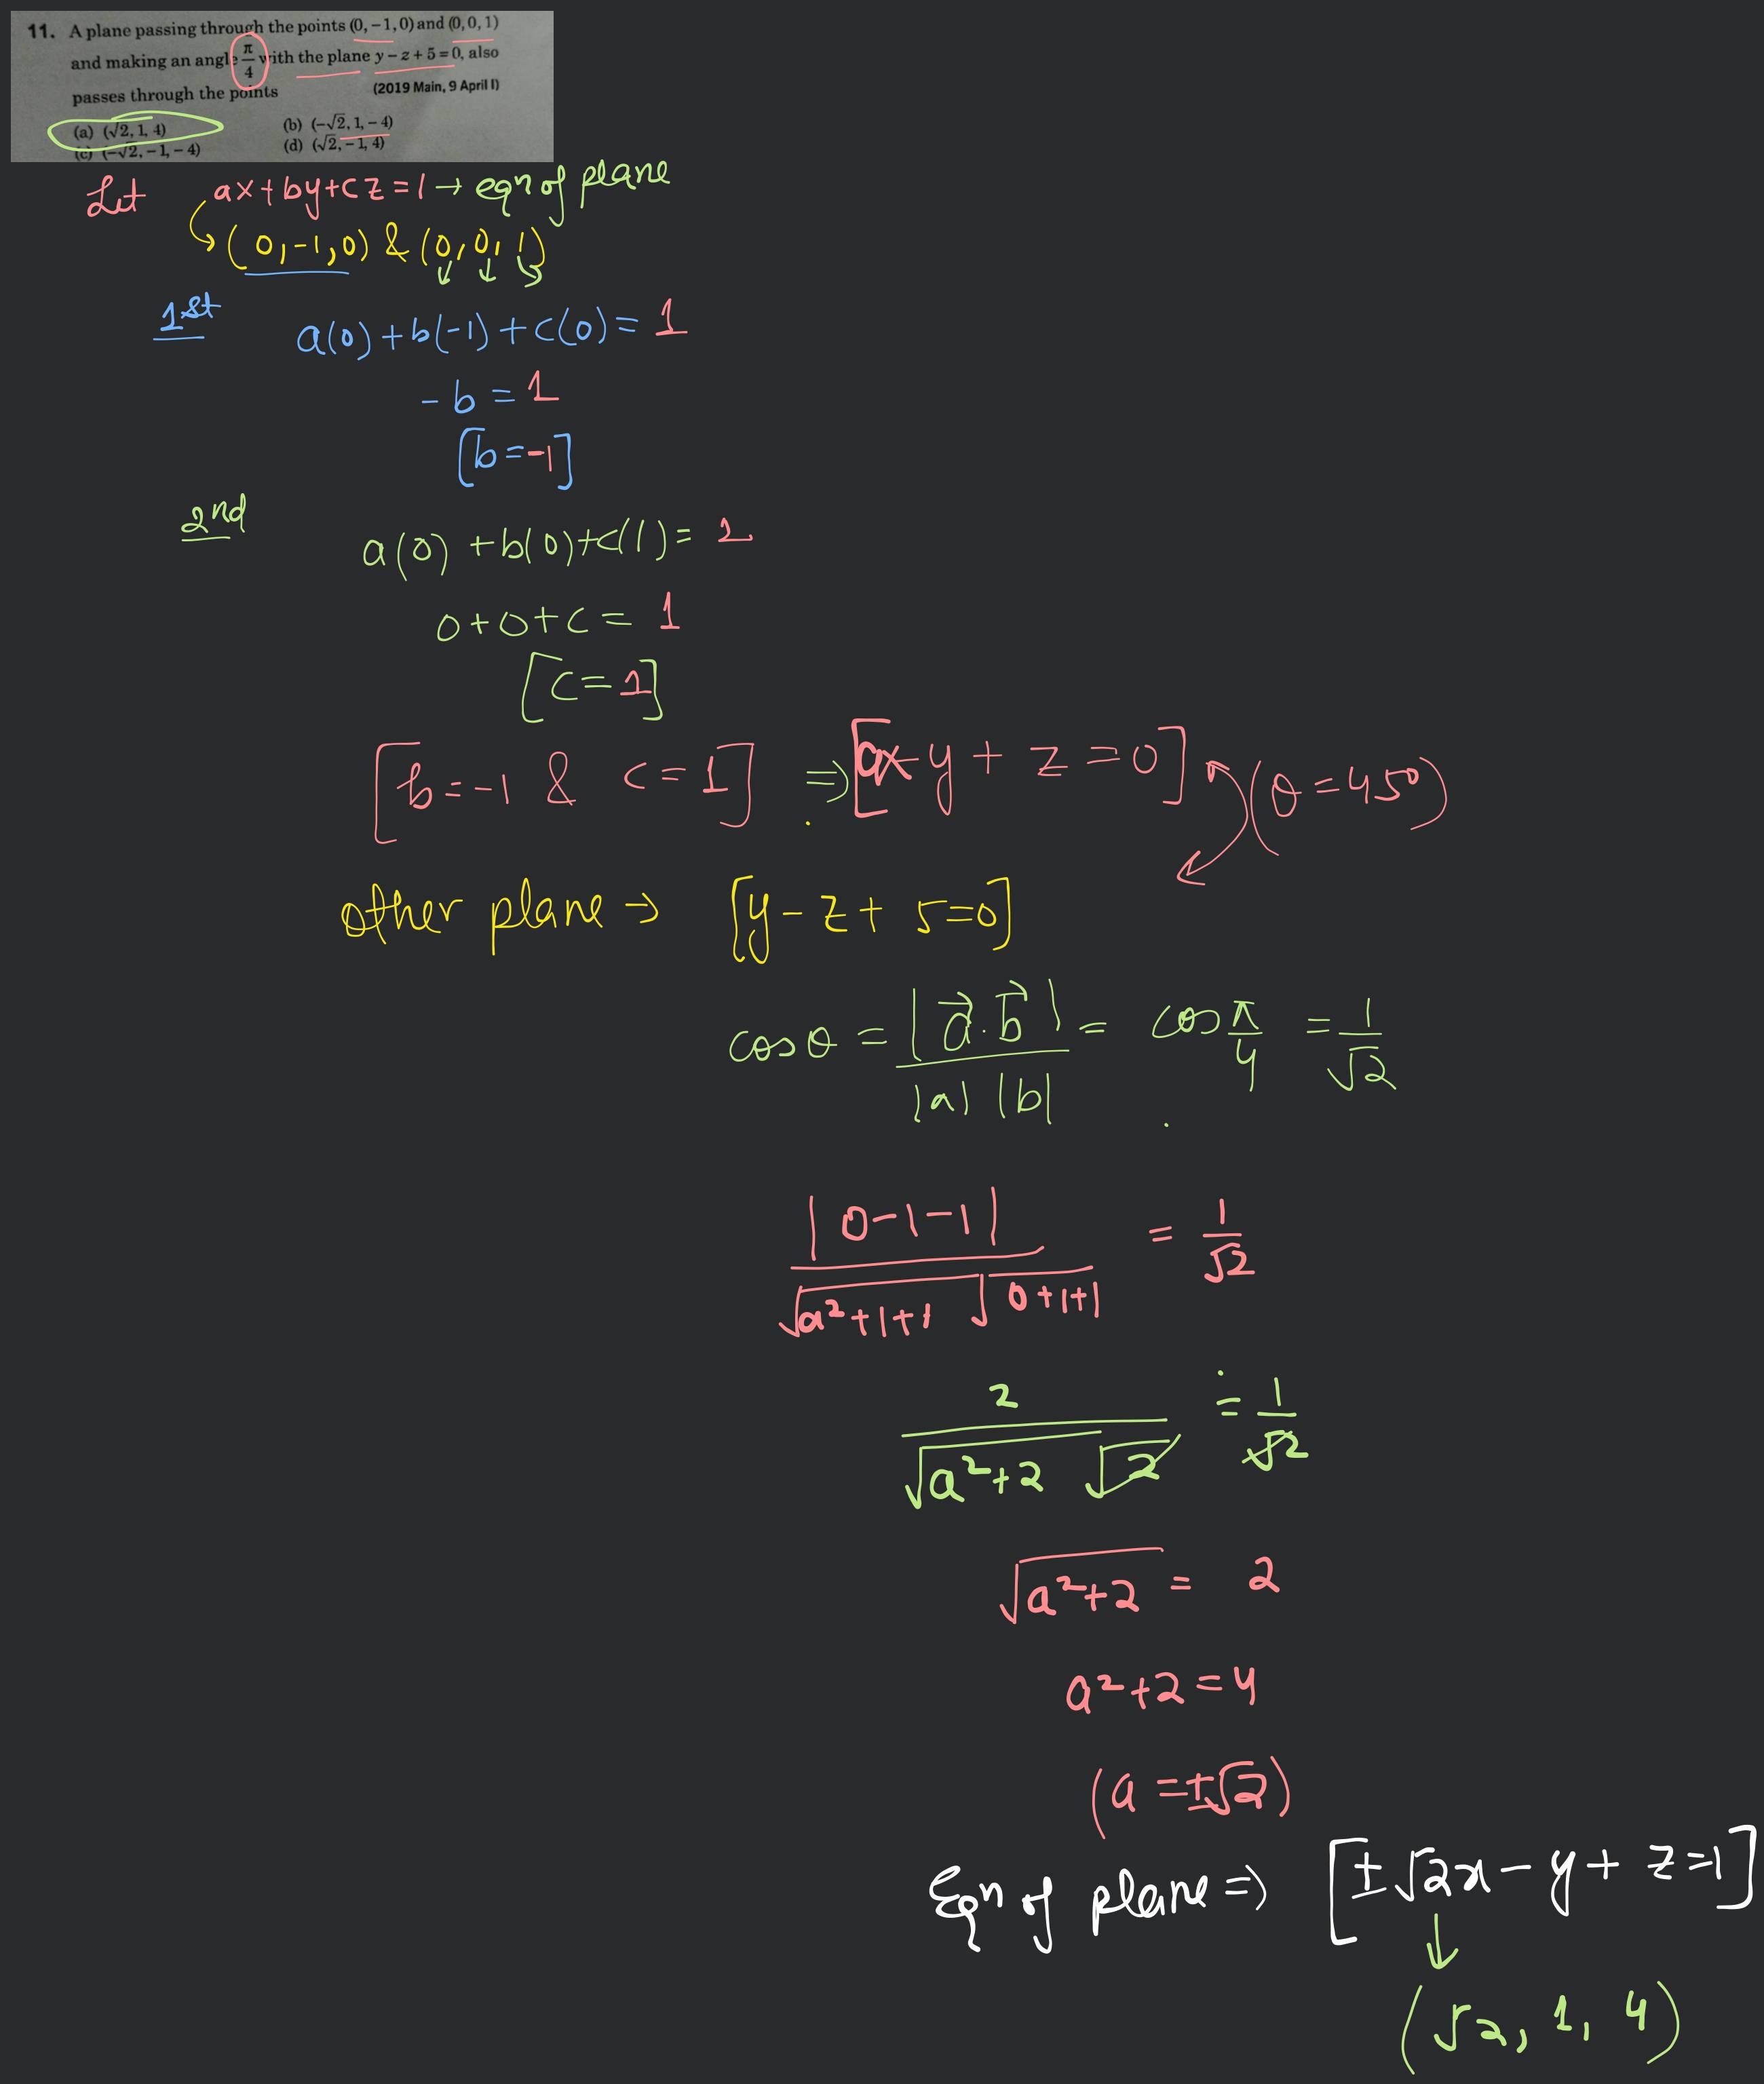 11. A plane passing through the points (0, −1, 0) and (0, 0, 1)
and making an angle π/4 with the plane y − z + 5 = 0, also
passes through the points (2019 Main, 9 April I)
(a) (√2, 1, 4) (b) (−√2, 1, −4)
(c) (−√2, −1, −4) (d) (√2, −1, 4)
Let ax+by+cz=1 → eqn of plane
(0,-1,0) & (0,0,1)
1st a(0)+b(-1)+c(0)=1
-b=1
[b=-1]
2nd a(0)+b(0)+c(1)=1
0+0+c=1
[c=1]
[b=-1 & c=1] ⇒ [ax-y+z=0] (θ=45°)
other plane → [y-z+5=0]
cosθ = |a⃗.b⃗| / |a| |b| = cos π/4 = 1/√2
|0-1-1| / √a²+1+1 √0+1+1 = 1/√2
2 / √a²+2 √2 = 1/√2
√a²+2 = 2
a²+2=4
(a=±√2)
Eqn of plane ⇒ [±√2x-y+z=1]
↓
(√2, 1, 4)